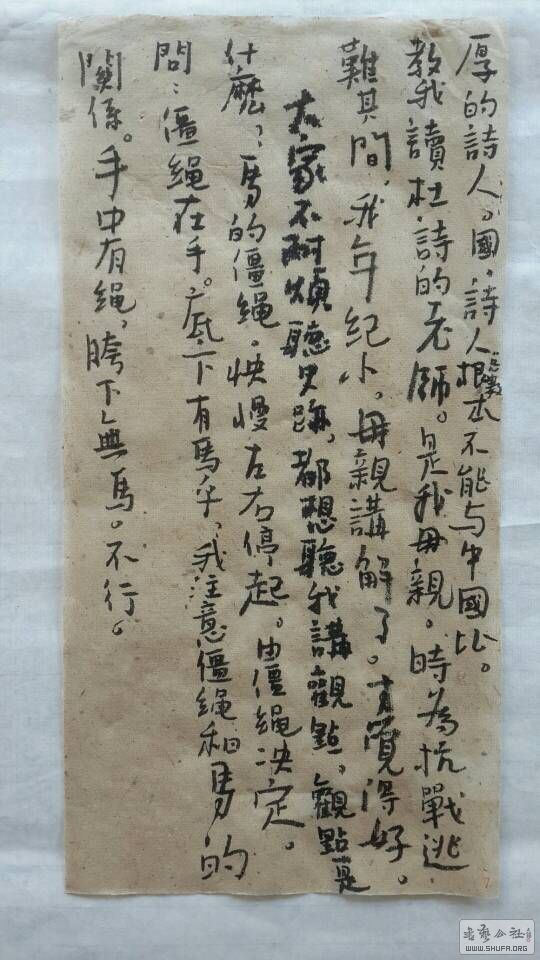 厚的詩人。國、詩人根本不能与中國比。
教我讀杜詩的老師。是我母親。時為抗戰逃
難其間,我年紀小。母親講解了。才覺得好。
大家不耐煩聽史跡,都想聽我講觀點,觀點是
什麽,馬的僵绳,快慢左右停起。由僵绳决定。
問:僵绳在手。底下有馬乎,我注意僵绳和馬的
關係。手中有绳,胯下無馬。不行。
7
WWW.SHUFA.ORG